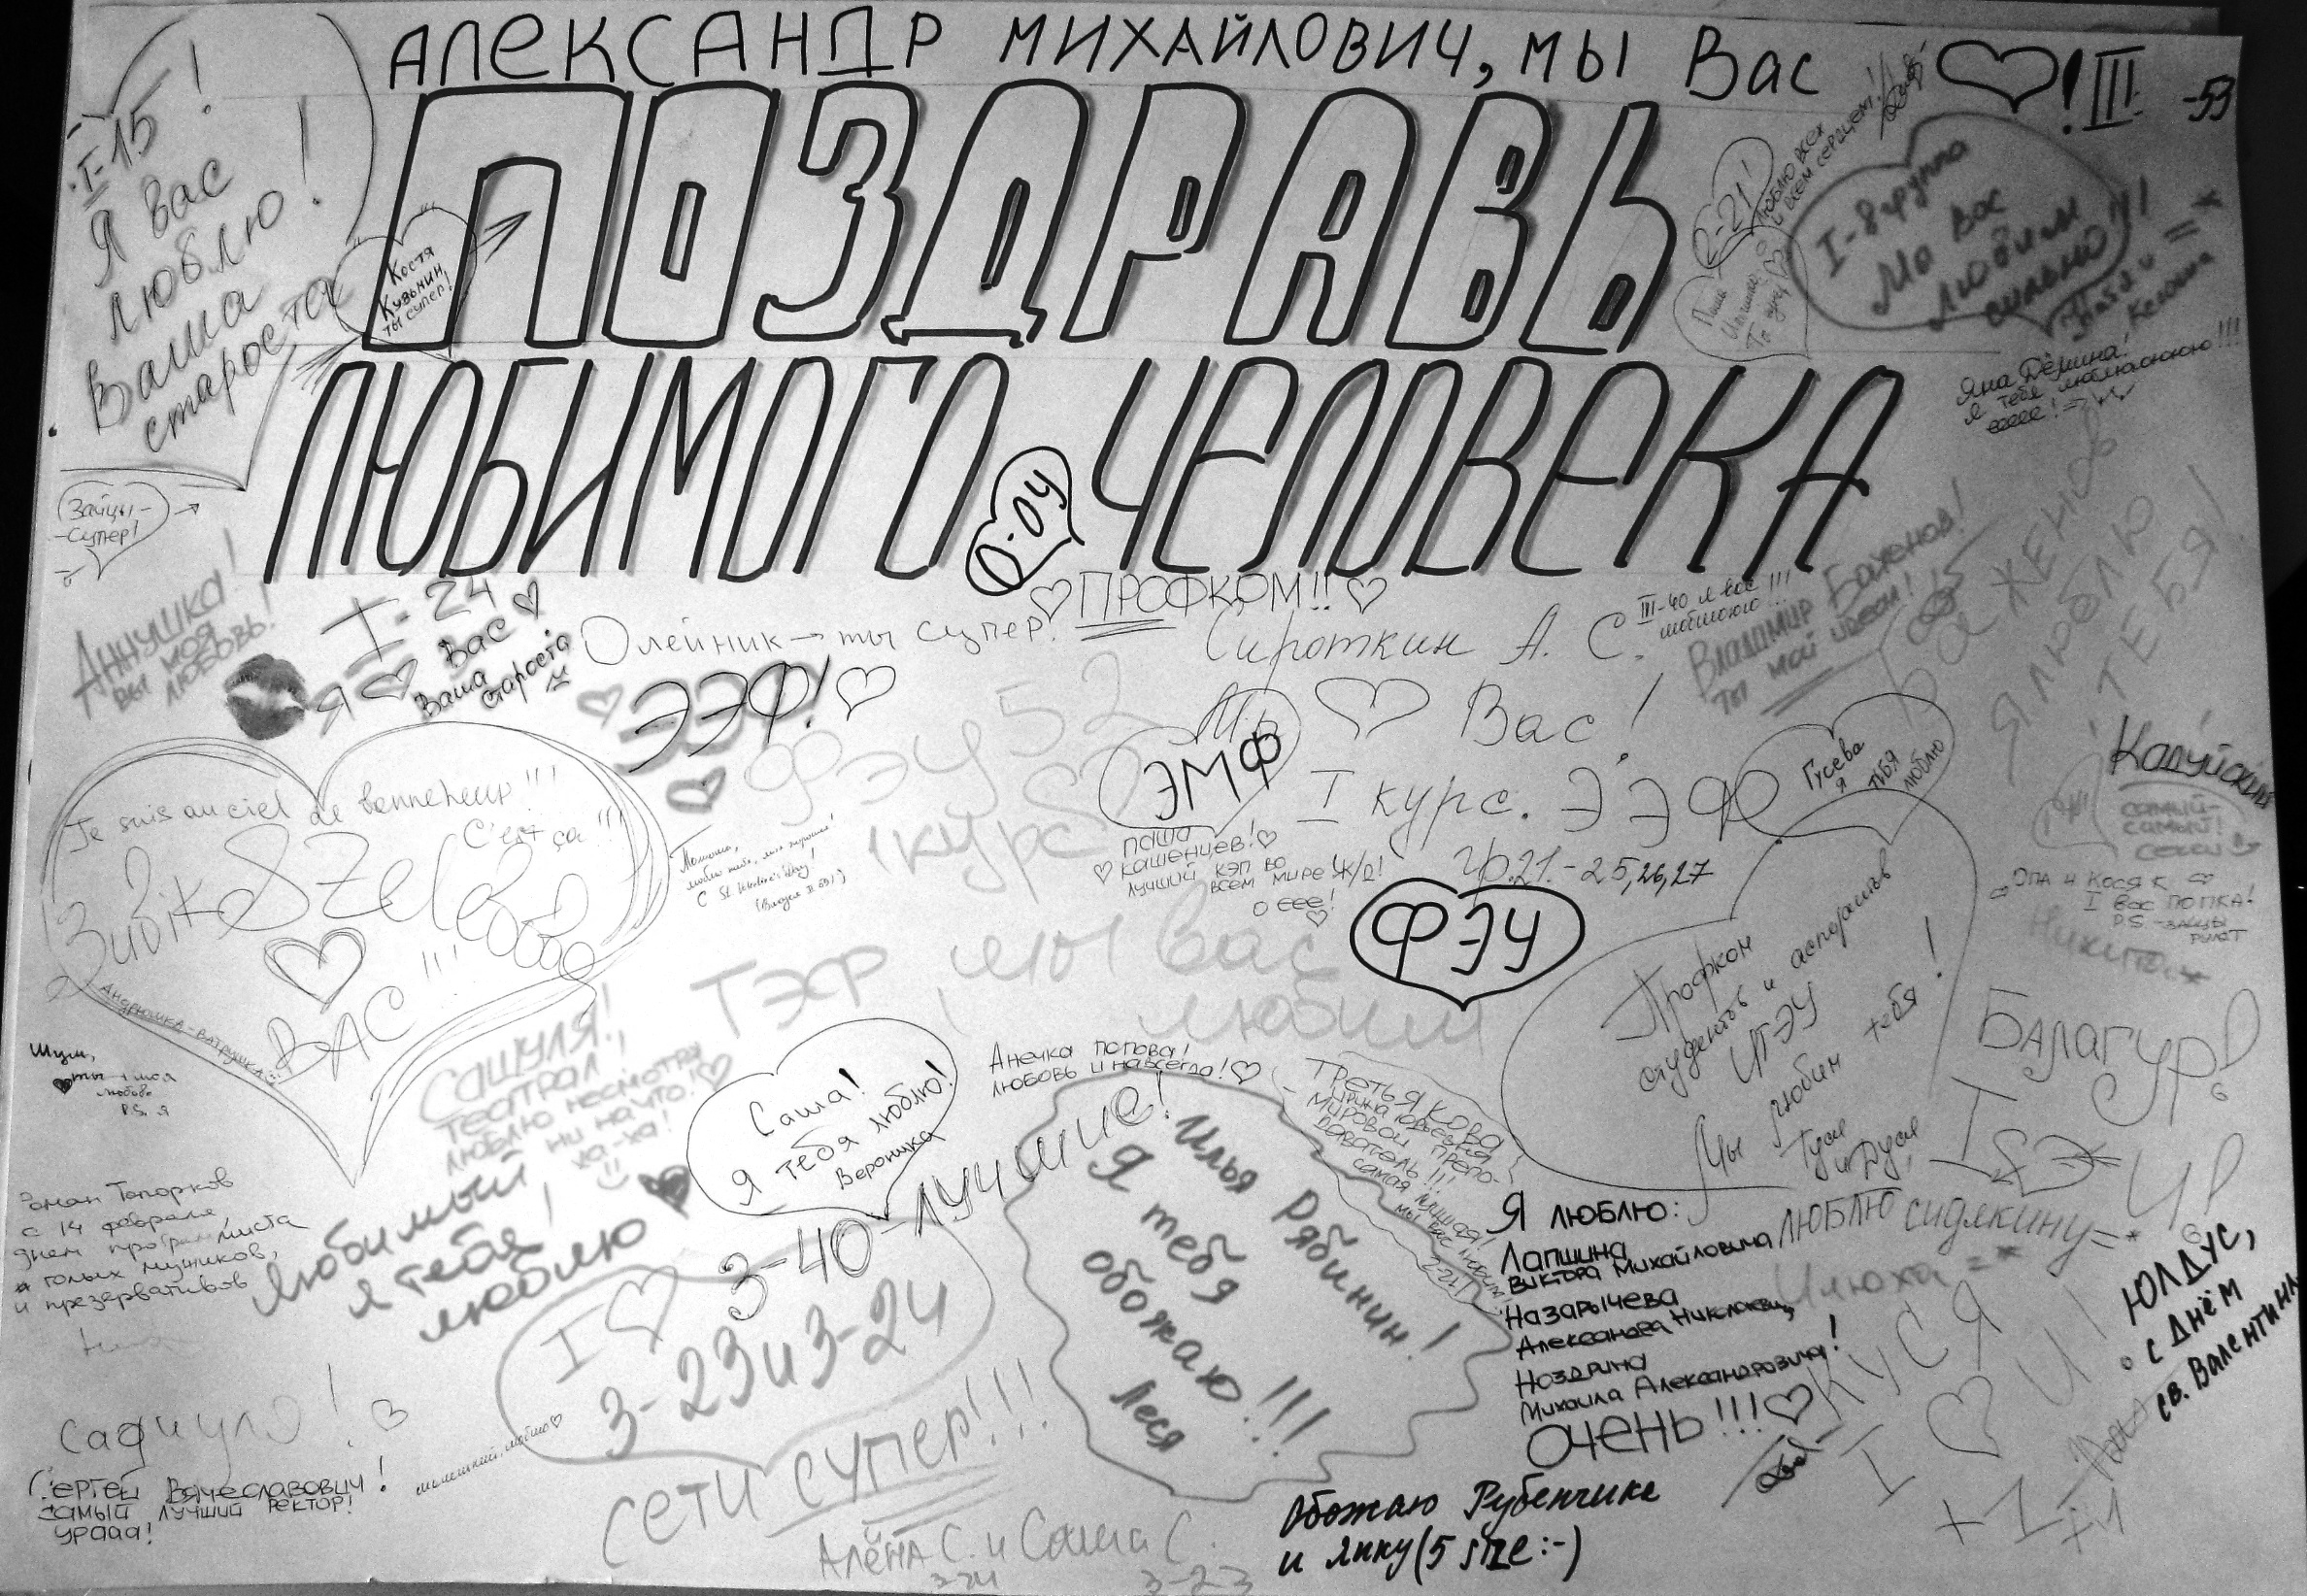 АЛЕКСАНДР МИХАЙЛОВИЧ, МЫ Вас ♡! III -53
ПОЗДРАВЬ
ЛЮБИМОГО ЧЕЛОВЕКА
I-15!
Я вас
люблю!
Ваша
староста
Костя
Кузьмин,
ты супер!
2-21!
люблю всех
и всем сердцем!
I-8 группа
Мы вас
любим
сильно!!!
Яна Дёмина!
я тебя
еееее!
Зайцы-
-супер!
О-ОУ
Аннушка!
вы моя
любовь!
I-24
Я ♡ Вас ♡
Ваша
староста
♡ ПРОФКОМ!! ♡
Олейник → ты супер!
ЭЭФ! ♡
Сироткин А. С.
Мы ♡ Вас!
I курс. ЭЭФ
гр.21.-25,26,27
III-40 я вас
Владимир Баженов!
ты мой идеал!
Баженов
я люблю
тебя!
ФЭУ 52
1курс
ЭМФ
Паша
Кашенцев!♡
лучший кэп во
всем мире Ж/Д!
О еее!
♡
ФЭУ
Гусева
я тебя
люблю
Кадуйский
самый-
самый!
Je suis au ciel de bonneheur!!!
C'est ça!!!
♡
ВАС!!!
Андрюшка-ватрушка
ТЭФ, мы вас
любим
Профком
студентов и аспирантов
ИГЭУ
Мы любим тебя!
Гуся
и Дуся
Опа и Косяк
I вас попка!
P.S. -зайцы
рулят
Никита
Балагур
Шум,
ты моя
любовь
P.S. я
Сашуля!
Театрал,
люблю несмотря
ни на что!♡
ха-ха!
Саша!
Я тебя люблю!
Вероника
Анечка Попова!
любовь и навсегда!♡
Третьякова
Ирина Юрьевна
мировой препо-
даватель!!!
самая лучшая!
мы вас любим!
2-21
Илья Рябинин!
Я тебя
обожаю!!!
Леся
Роман Топорков
с 14 февраля,
днем программиста
голых мужиков,
и презервативов
Любимый
я тебя
люблю
3-40-лучшие!
I ♡
3-23 и 3-24
Я люблю:
Лапшина
Виктора Михайловича
Назарычева
Александра Николаевича
Ноздрина
Михаила Александровича!
ОЧЕНЬ!!!♡
люблю Сидякину=*
Илюха =*
Юлдус,
с Днём
св. Валентина
Куся
I ♡ U!
+1
+1
Сергей Вячеславович!
самый лучший ректор!
урааа!
сети супер!!!
Алёна С. и Саша С.
3-24 3-23
Обожаю Рубенчика
и Янку (5 size :-)